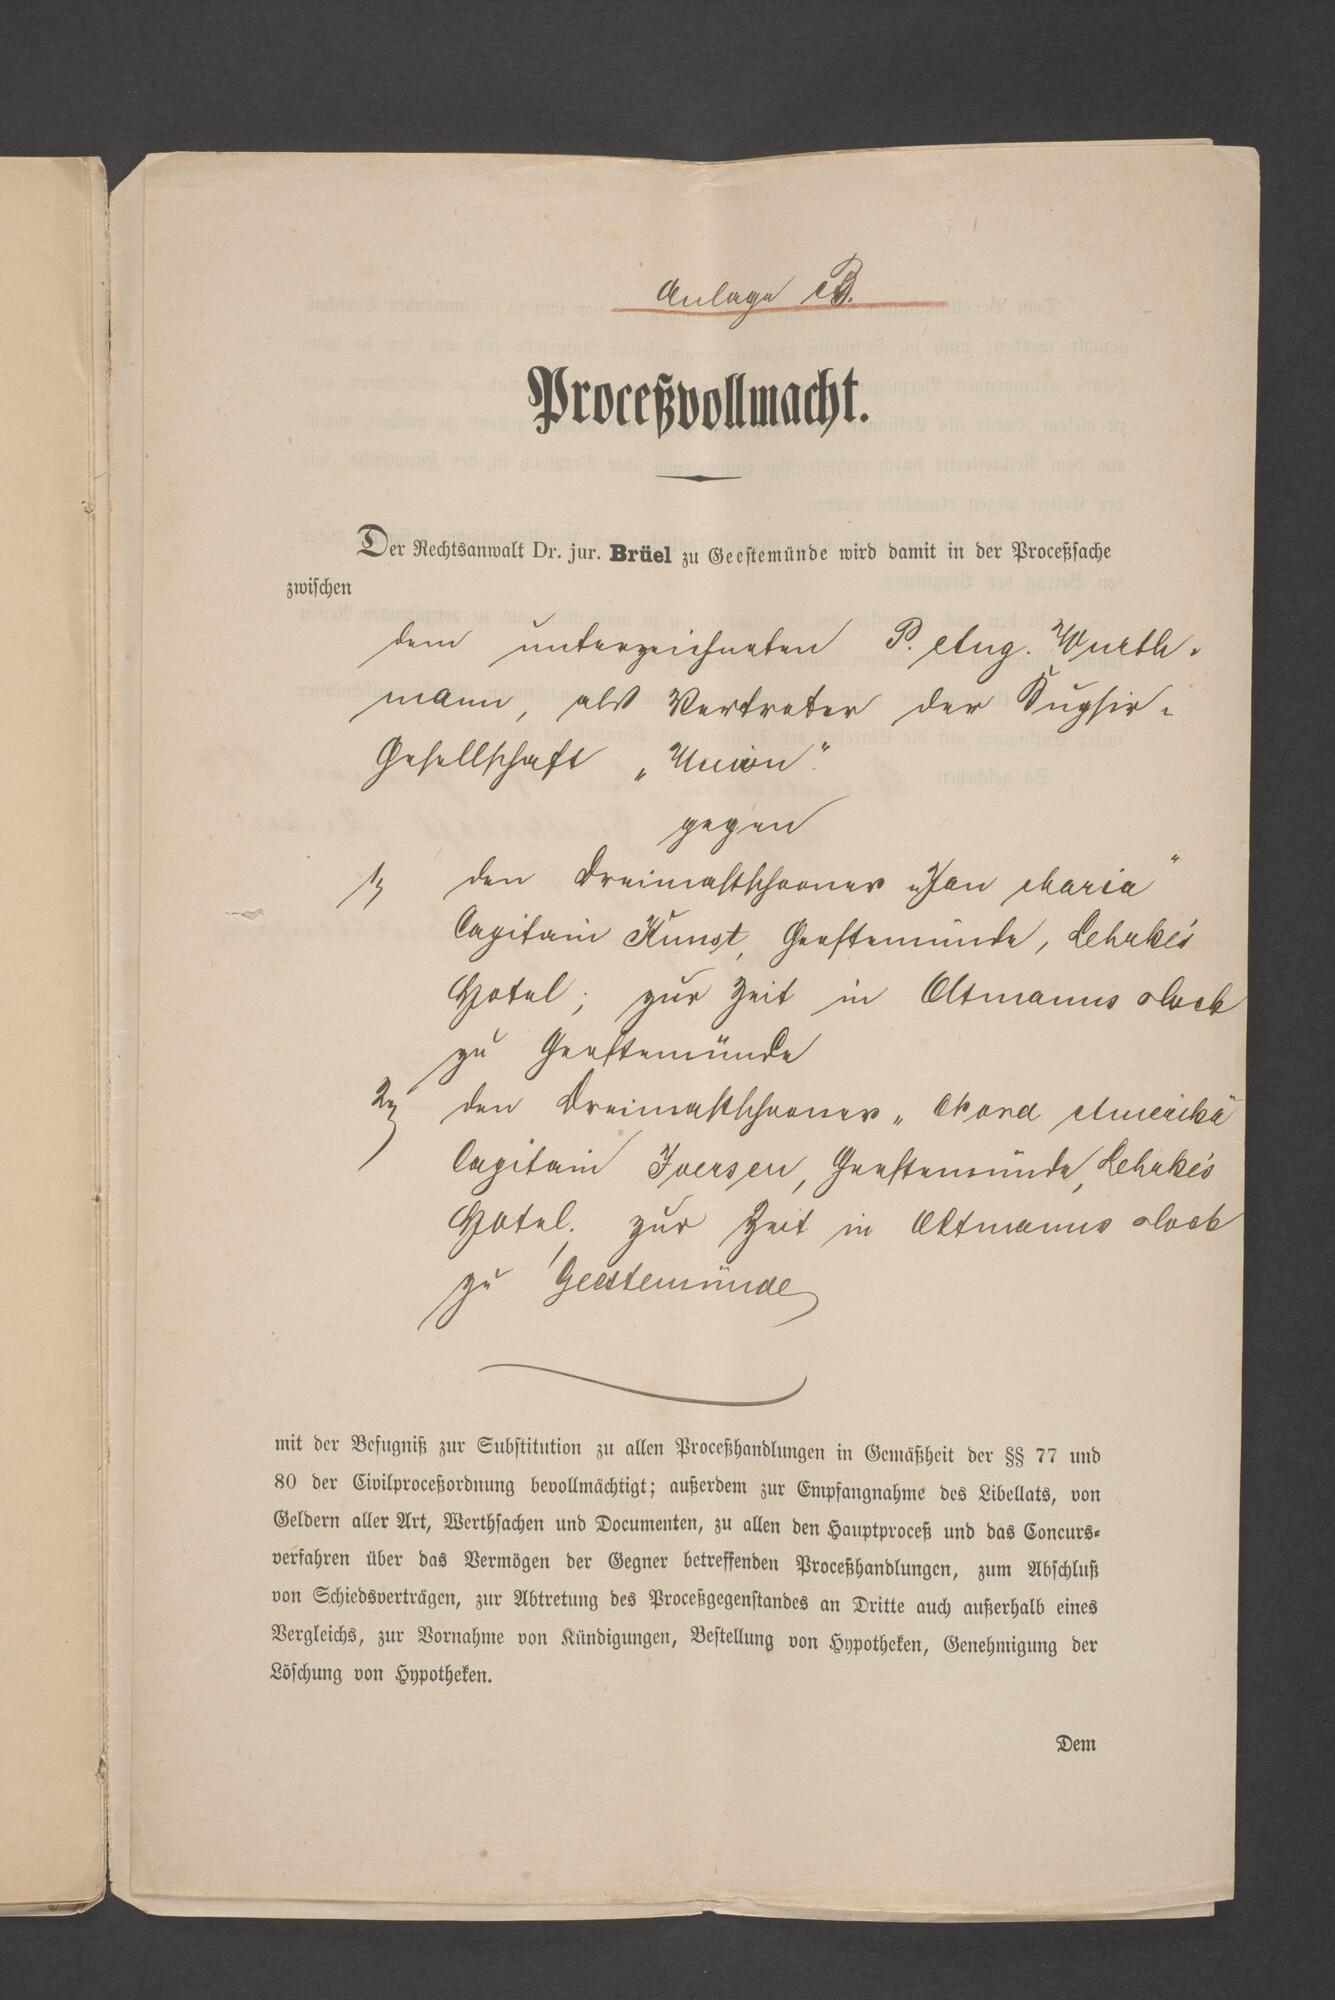 Anlage B.
Proceßvollmacht.
Der Rechtsanwalt Dr. jur. Brüel zu Geestemünde wird damit in der Proceßsache
zwischen
dem unterzeichneten P. Aug. Wurth-
mann, als Vertreter der Bugsir-
Gesellschaft „Union"
gegen
1, den Dreimastschooner „Jan Maria"
Capitain Kunst, Geestemünde, Lehrke's
Hotel; zur Zeit in Oltmanns Dock
zu Geestemünde
2, den Dreimastschooner „Nord Amerika"
Capitain Iversen, Geestemünde, Lehrke's
Hotel. zur Zeit in Oltmanns Dock
zu Geestemünde
mit der Befugniß zur Substitution zu allen Proceßhandlungen in Gemäßheit der §§ 77 und
80 der Civilproceßordnung bevollmächtigt; außerdem zur Empfangnahme des Libellats, von
Geldern aller Art, Werthsachen und Documenten, zu allen den Hauptproceß und das Concurs-
verfahren über das Vermögen der Gegner betreffenden Proceßhandlungen, zum Abschluß
von Schiedsverträgen, zur Abtretung des Proceßgegenstandes an Dritte auch außerhalb eines
Vergleichs, zur Vornahme von Kündigungen, Bestellung von Hypotheken, Genehmigung der
Löschung von Hypotheken.
Dem